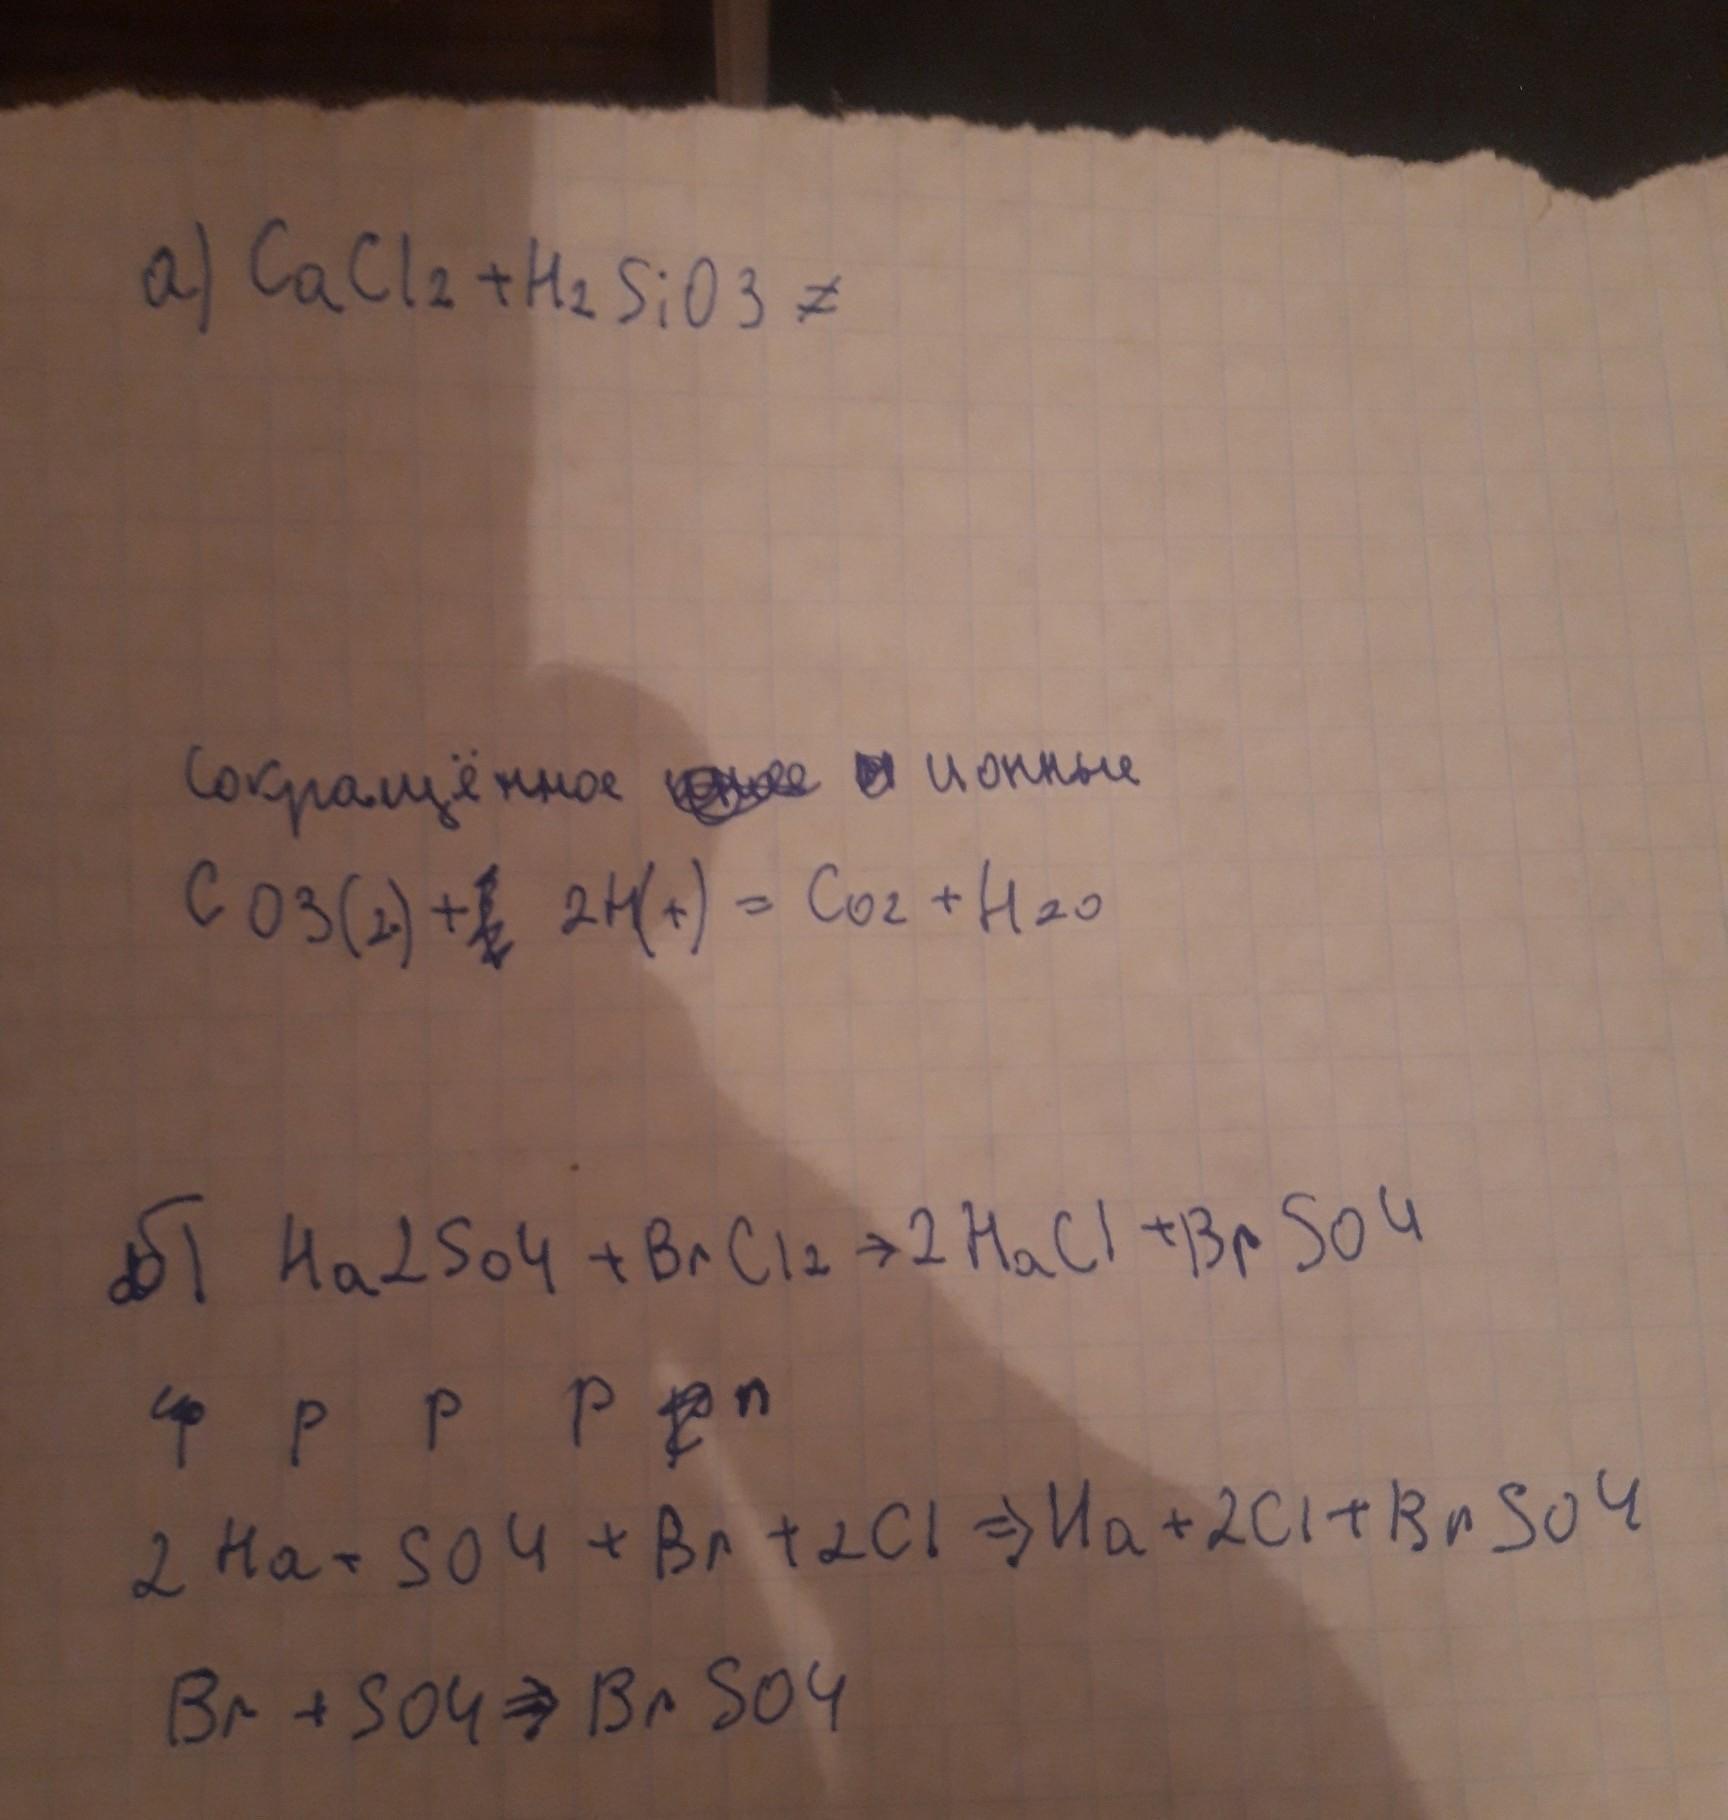 а) CaCl2 + H2SiO3 ≠
Сокращённое ионные
CO3(2-) + 2H(+) = CO2 + H2O
б) Na2SO4 + BrCl2 → 2NaCl + BrSO4
р р р п
2Na + SO4 + Br + 2Cl ⇒ Na + 2Cl + BrSO4
Br + SO4 ⇒ BrSO4